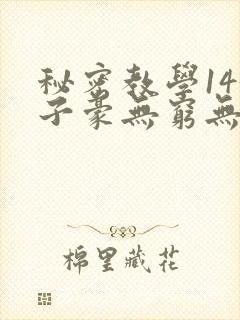 秘密教學14
子豪無窮無
棉里藏花